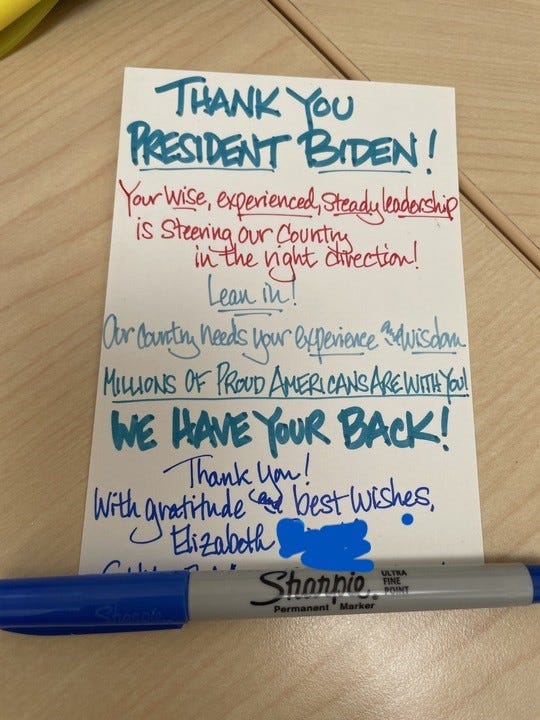 THANK YOU
PRESIDENT BIDEN!
Your wise, experienced, steady leadership
is steering our country
in the right direction!
Lean in!
Our country needs your experience and wisdom
MILLIONS OF PROUD AMERICANS ARE WITH YOU!
WE HAVE YOUR BACK!
Thank you!
With gratitude and best wishes,
Elizabeth
Sharpie
Sharpie. ULTRA
FINE
POINT
Permanent Marker